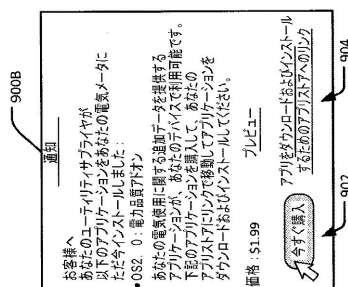 900B
通知
お客様へ
あなたのユーティリティサプライヤが
以下のアプリケーションをあなたの電気メータに
ただ今インストールしました：
•OS2．0：電力品質アドオン
あなたの電気使用に関する追加データを提供する
アプリケーションが、あなたのデバイスで利用可能です。
下記のアプリケーションを購入して、あなたの
アプリストアにリンクで移動してアプリケーションを
ダウンロードおよびインストールしてください。
価格：$1.99 プレビュー
今すぐ購入
アプリをダウンロードおよびインストール
するためのアプリストアへのリンク
902
904